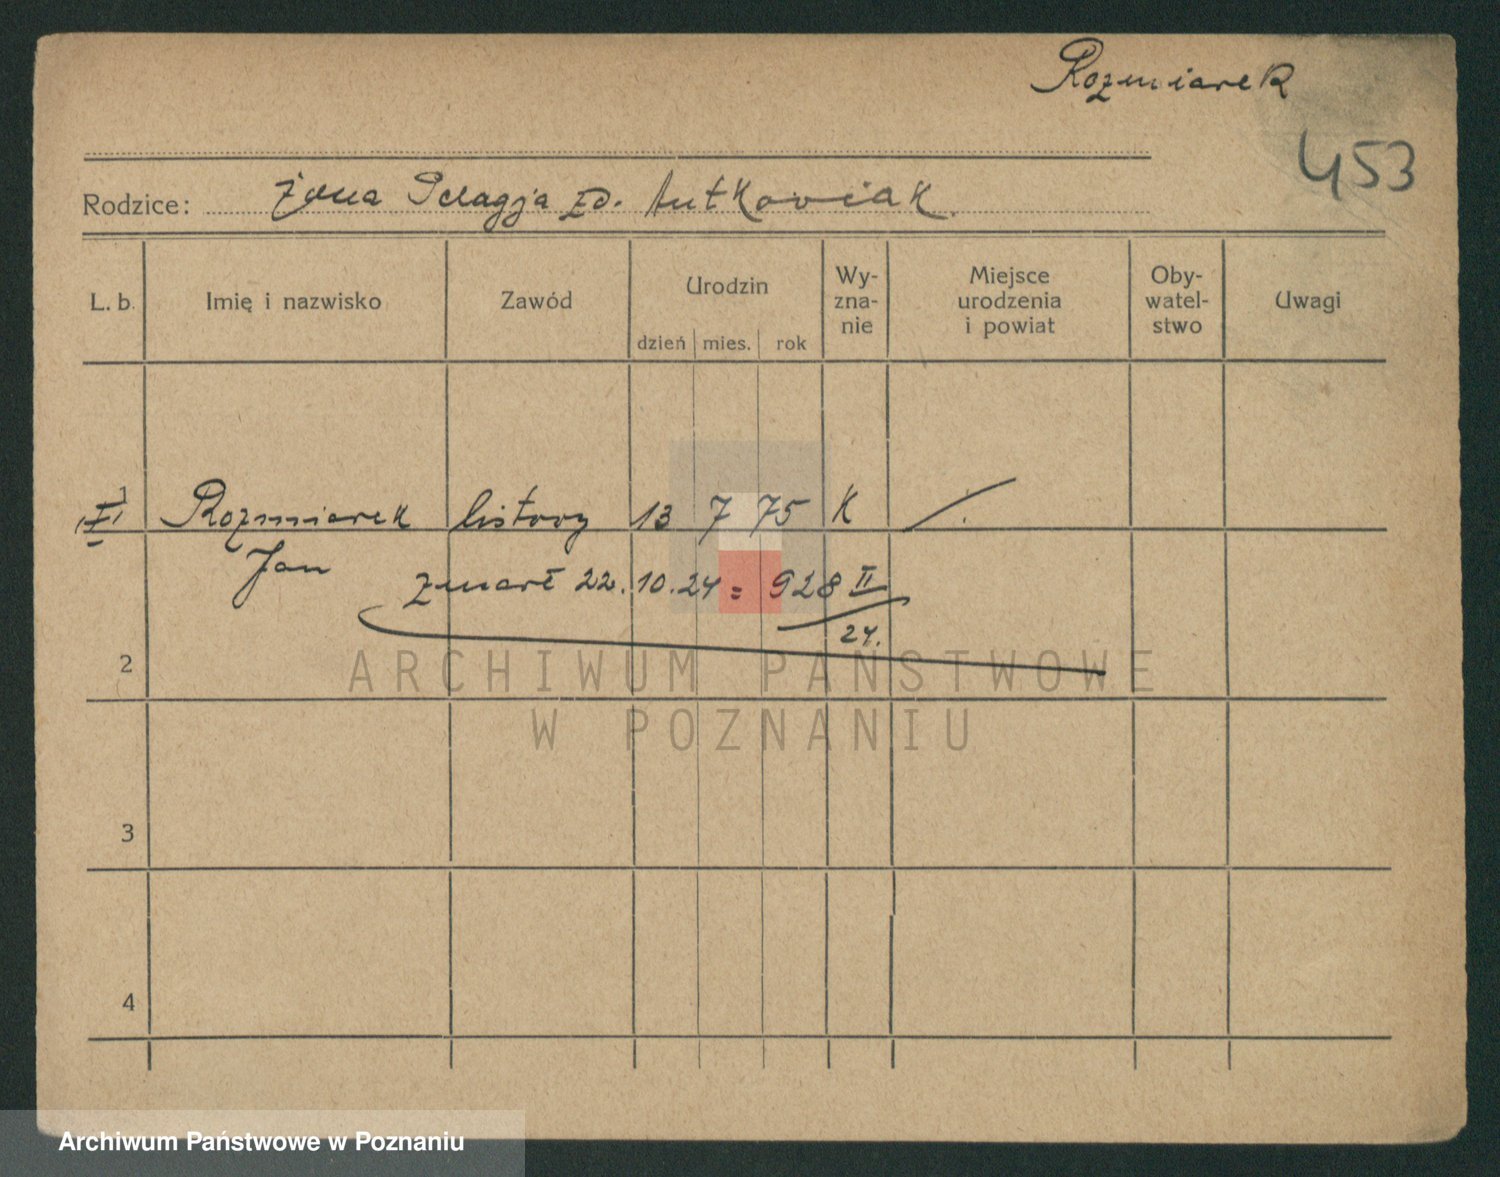 Rozmiarek
453
Rodzice: żona Pelagja zd. Antkowiak.
L. b. Imię i nazwisko Zawód Urodzin dzień mies. rok Wy- zna- nie Miejsce urodzenia i powiat Oby- watel- stwo Uwagi
1 Rozmiarek listowy 13 7 75 K
Jan
zmarł 22.10.24 = 928 II
24.
2
ARCHIWUM PAŃSTWOWE
W POZNANIU
3
4
Archiwum Państwowe w Poznaniu